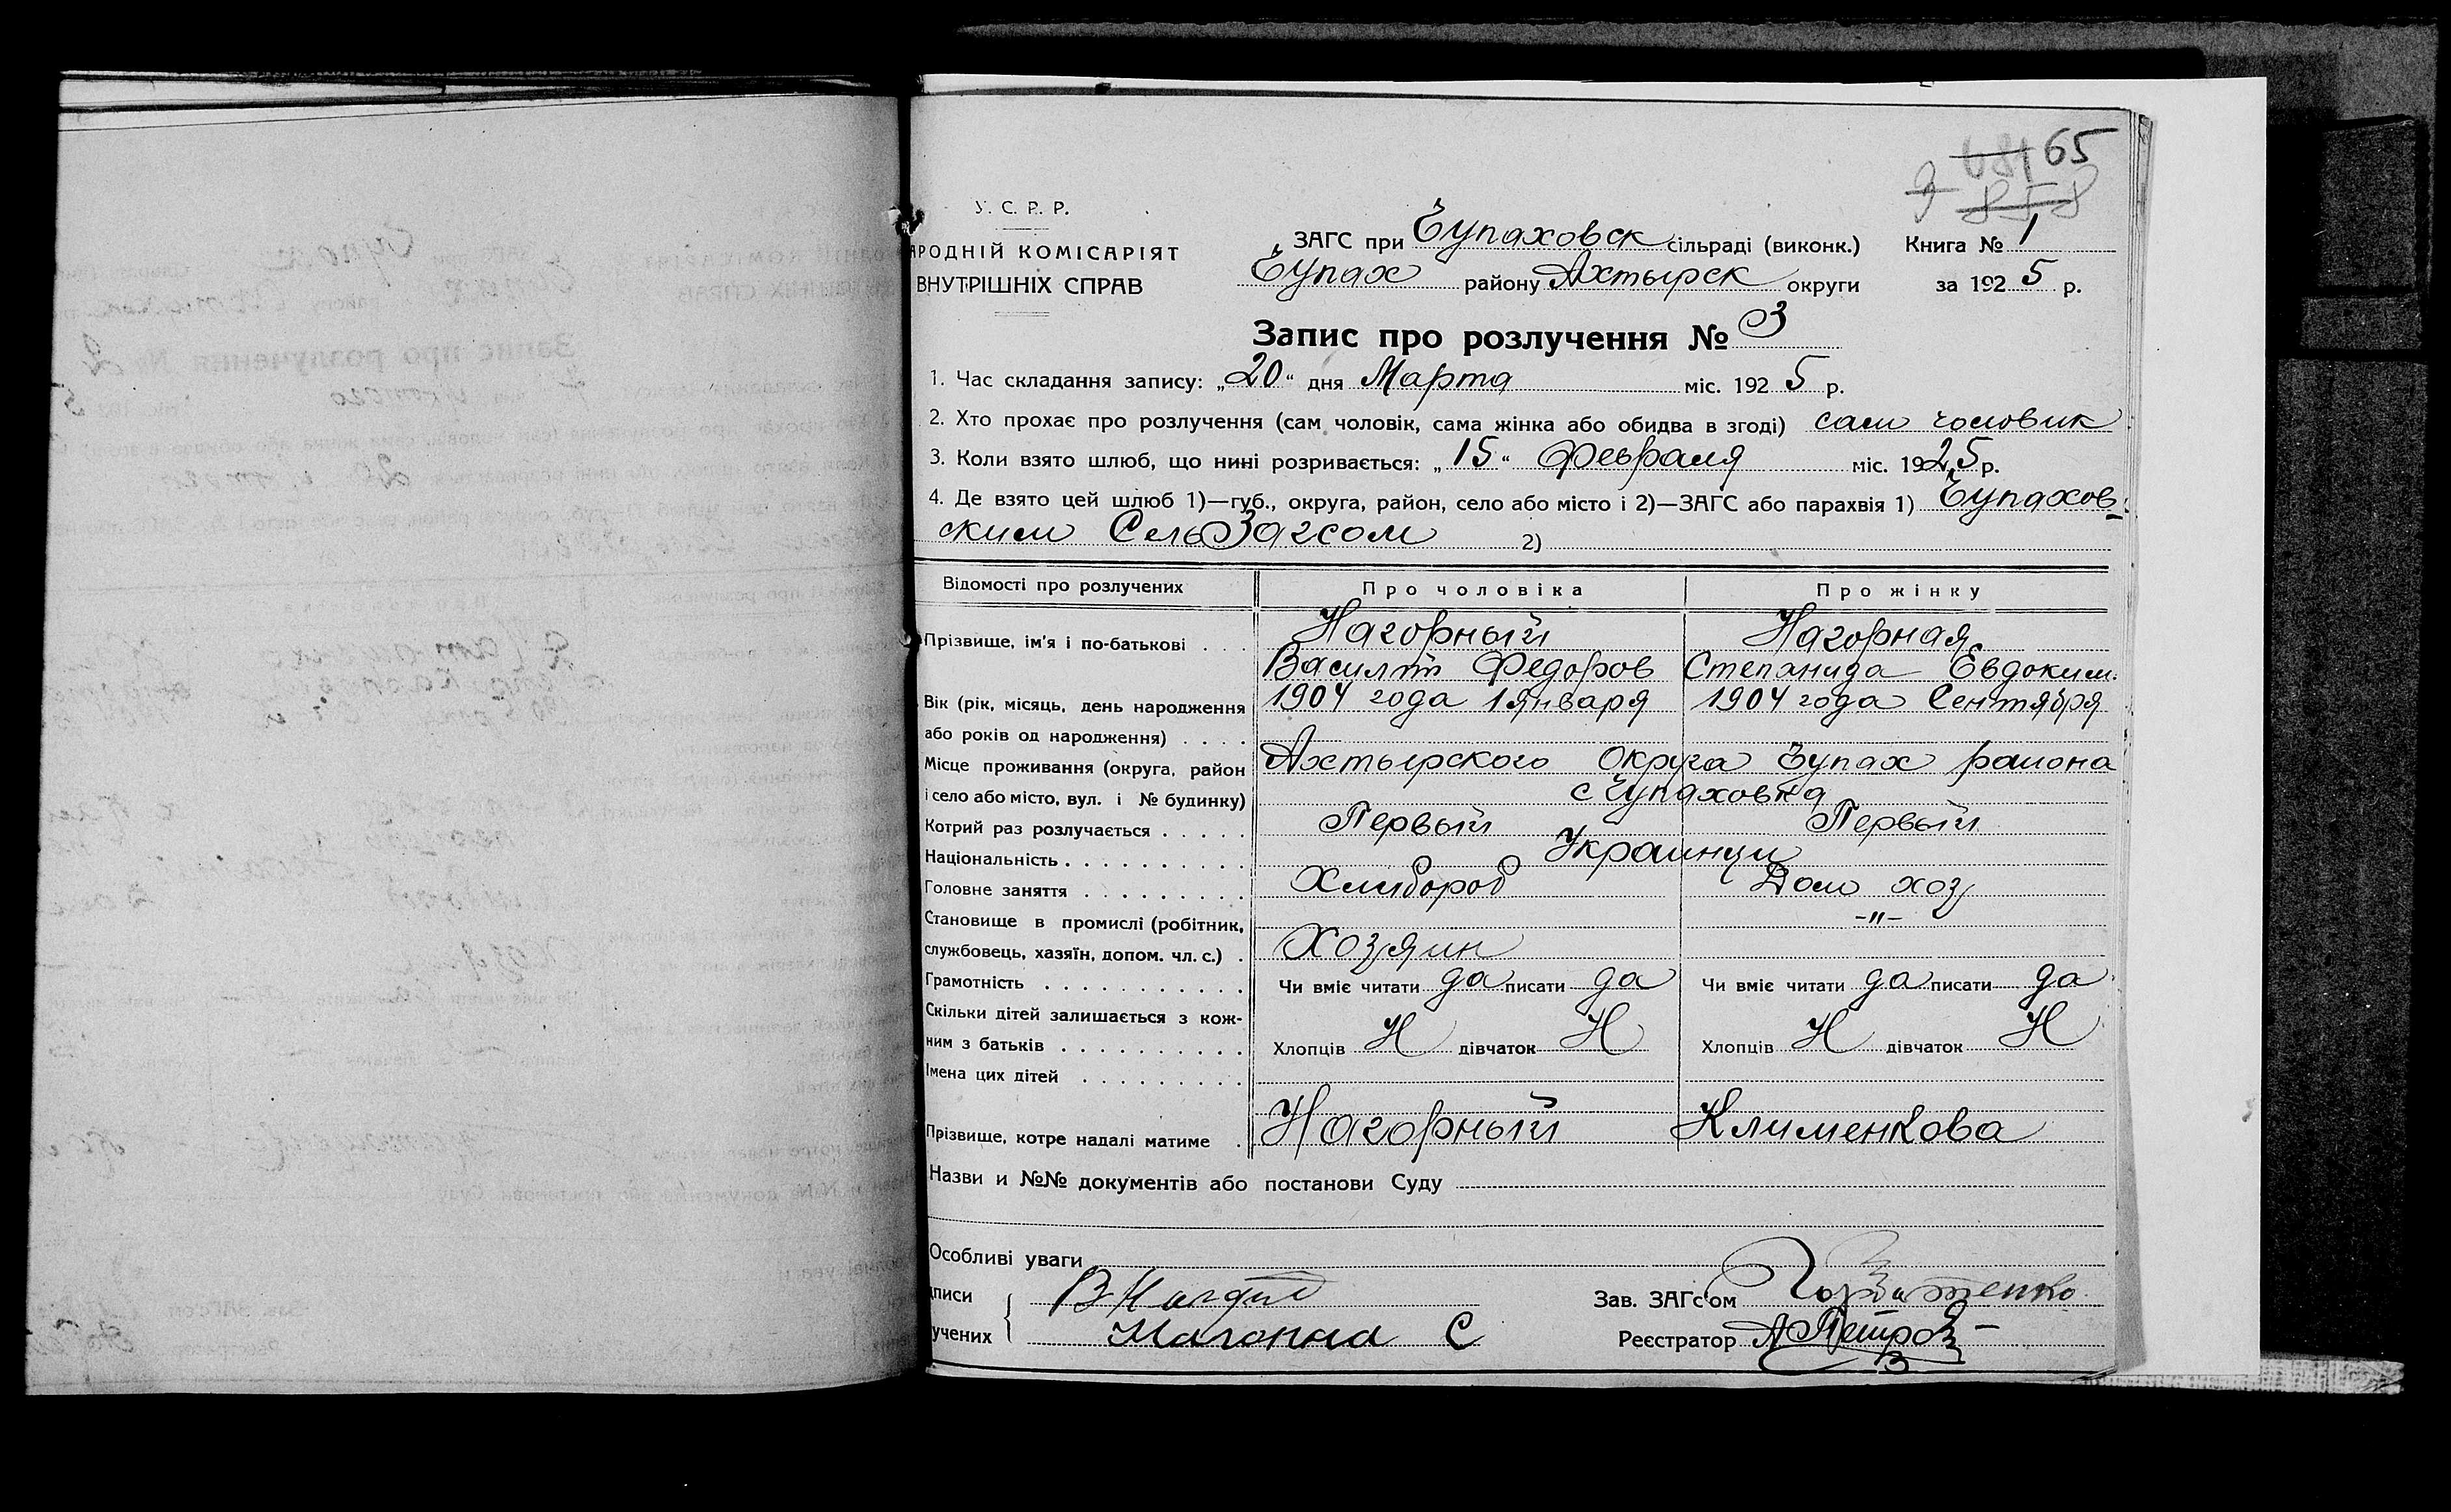 65
У. С. Р. Р.
АРОДНІЙ КОМІСАРІЯТ
ВНУТРІШНІХ СПРАВ
ЗАГС при Чупаховск сільраді (виконк.) Книга № 1
Чупах району Ахтырск округи за 1925 р.
Запис про розлучення № 3
1. Час складання запису: „20“ дня Марта міс. 1925 р.
2. Хто прохає про розлучення (сам чоловік, сама жінка або обидва в згоді) сам чоловик
3. Коли взято шлюб, що нині розривається: „15“ Февраля міс. 1925 р.
4. Де взято цей шлюб 1)—губ., округа, район, село або місто і 2)—ЗАГС або парахвія 1) Чупахов-
ским СельЗагсом 2)
Відомості про розлучених Про чоловіка Про жінку
Прізвище, ім'я і по-батькові . . . Нагорный Нагорная
Василий Федоров Степанида Евдоким.
Вік (рік, місяць, день народження 1904 года 1 января 1904 года Сентября
або років од народження) . . . .
Місце проживання (округа, район Ахтырского Округа Чупах района
і село або місто, вул. і № будинку) с Чупаховка
Котрий раз розлучається . . . . . Первый Первый
Національність . . . . . . . . . . Украинци
Головне заняття . . . . . . . . . Хлибороб Дом хоз
Становище в промислі (робітник, -"-
службовець, хазяїн, допом. чл. с.) . Хозяин
Грамотність . . . . . . . . . . . Чи вміє читати да писати да Чи вміє читати да писати да
Скільки дітей залишається з кож-
ним з батьків . . . . . . . . . . Хлопців Н дівчаток Н Хлопців Н дівчаток Н
Імена цих дітей . . . . . . . . .
Прізвище, котре надалі матиме . Нагорный Клименкова
Назви и №№ документів або постанови Суду
Особливі уваги
писи Зав. ЗАГс'ом
учених С Реєстратор АПетров